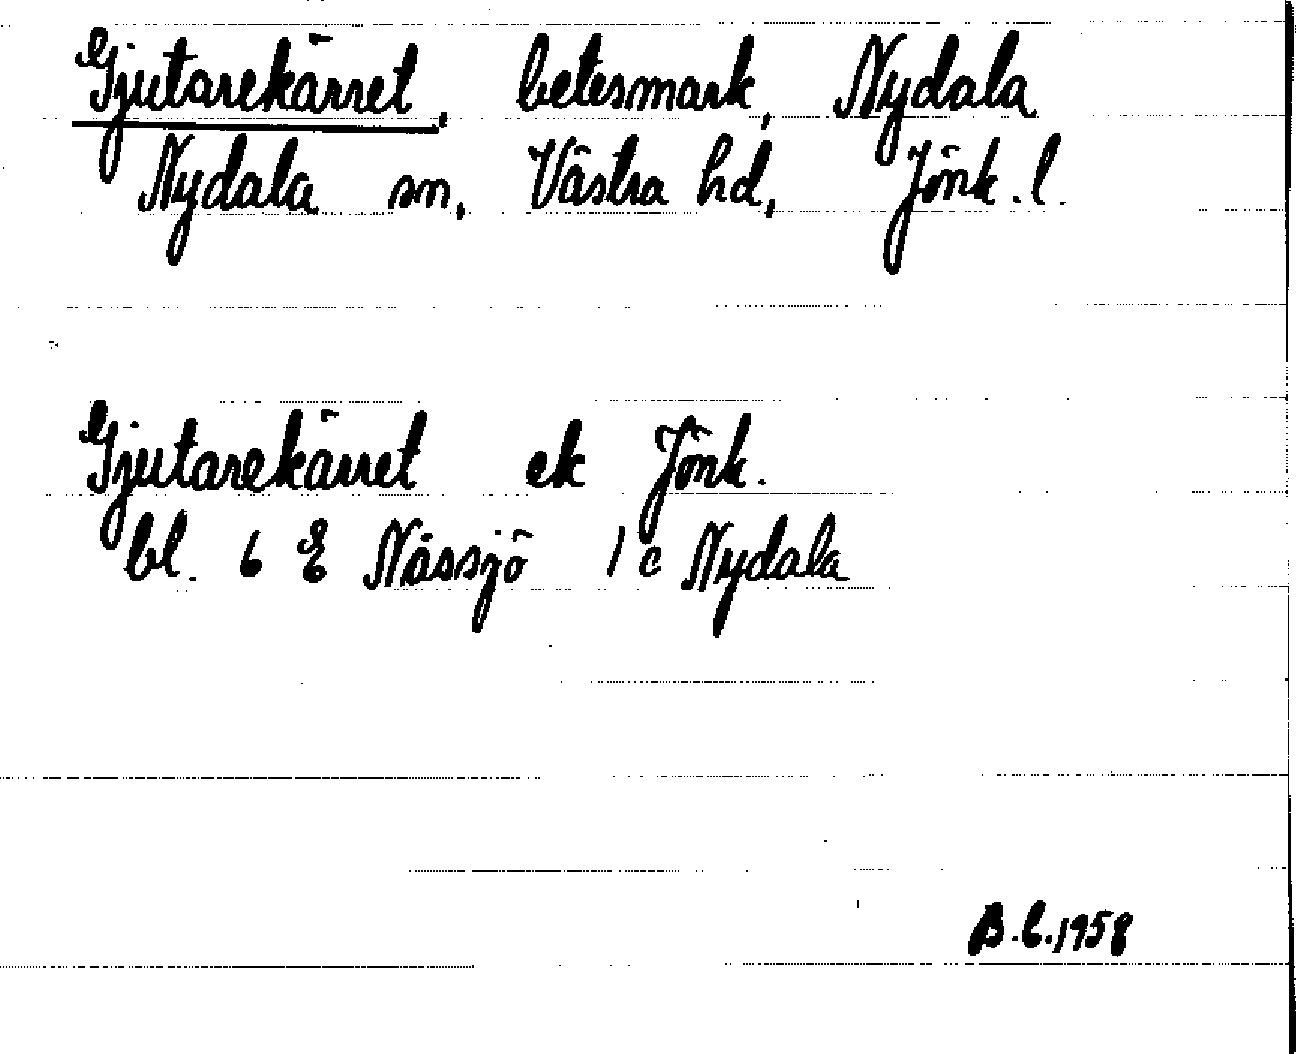 Gjutarekärret, betesmark, Nydala
Nydala sn, Västra hd, Jönk. l.
Gjutarekärret ek Jönk.
bl. 6 E Nässjö 1 c Nydala
B.C.1958